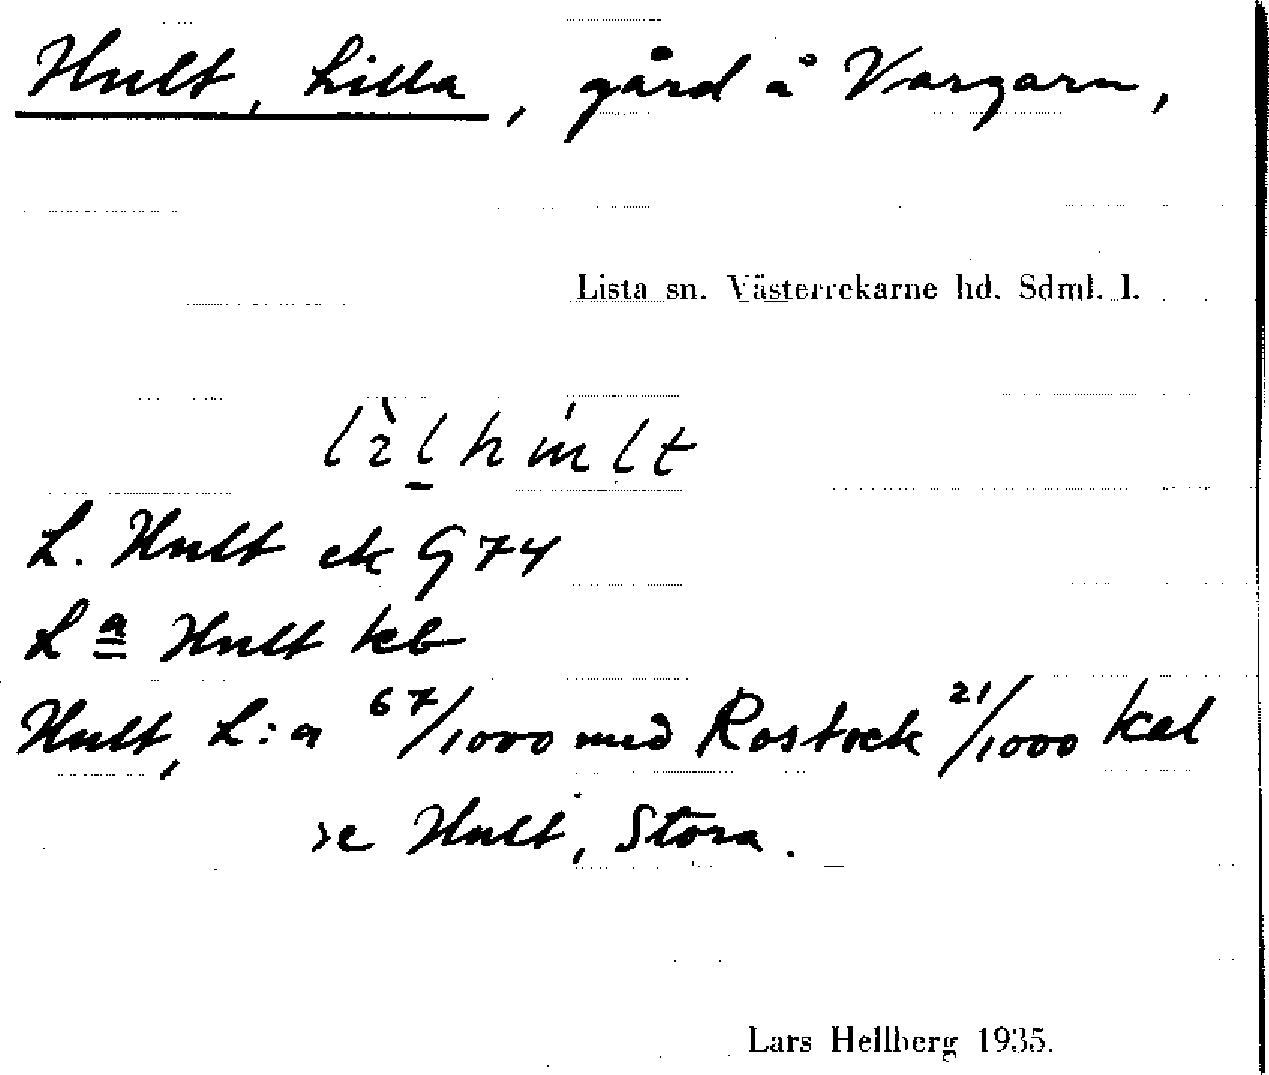 Hult, Lilla, gård å Vargarn,
Lista sn. Västerrekarne hd. Sdml. l.
L. Hult ek G 74
L<u>a</u> Hult kb
Hult, L:a 67/1000 med Rostock 21/1000 kel
se Hult, Stora.
Lars Hellberg 1935.